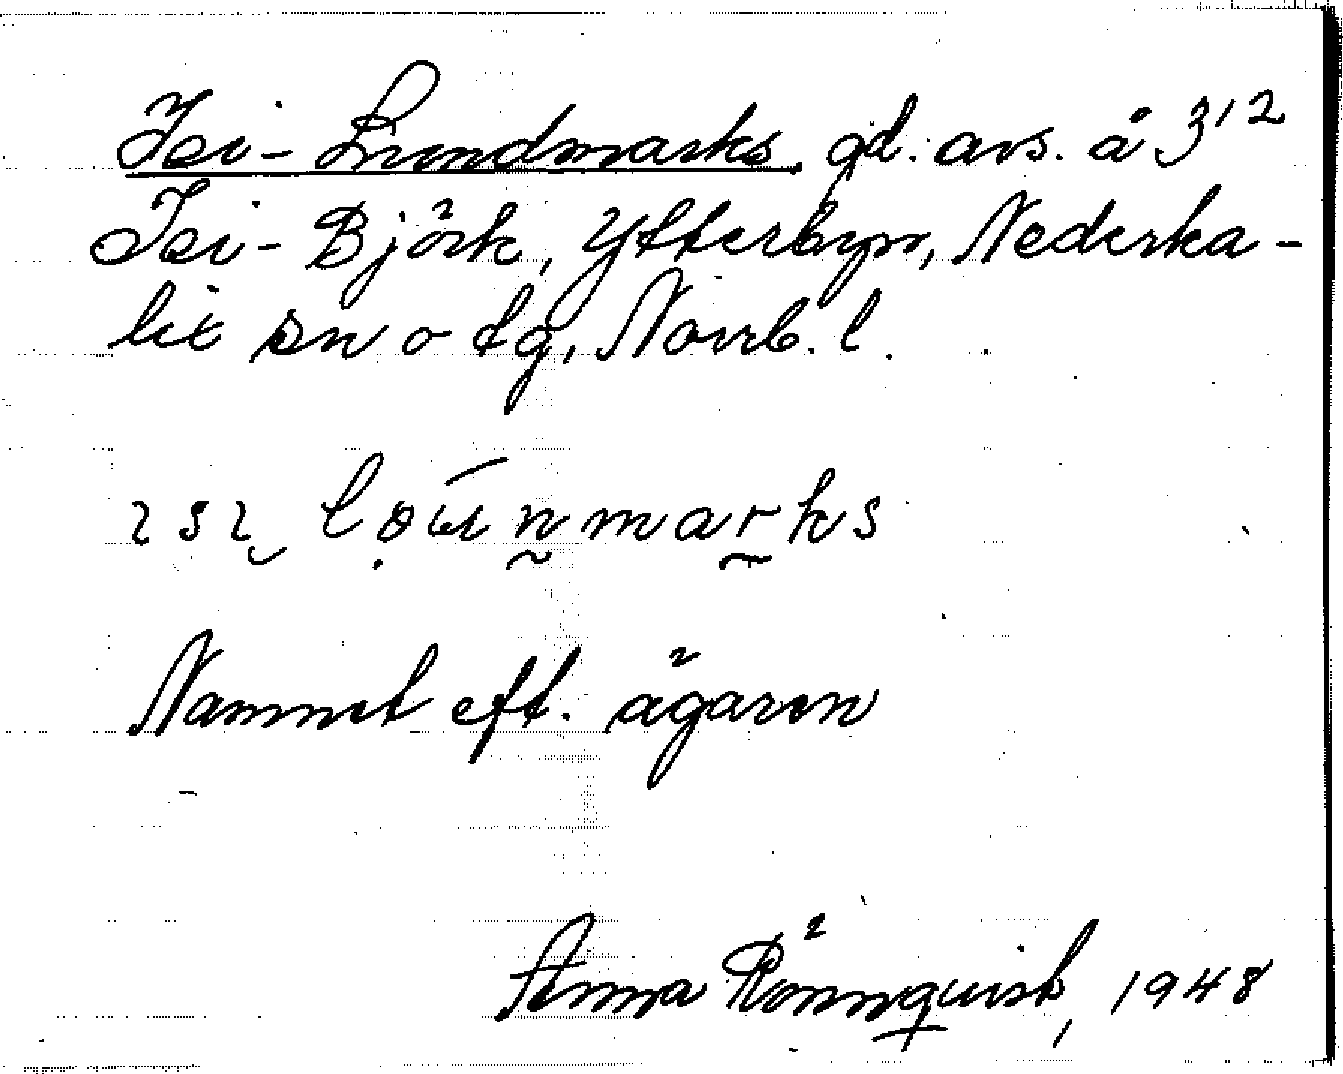 Isi-Lundmarks, gd. avs. å 3¹²
Isi-Björk, Ytterbyn, Nederka-
lix sn o tg, Norrb. l.
Namnet eft. ägaren
Anna Rönnquist, 1948